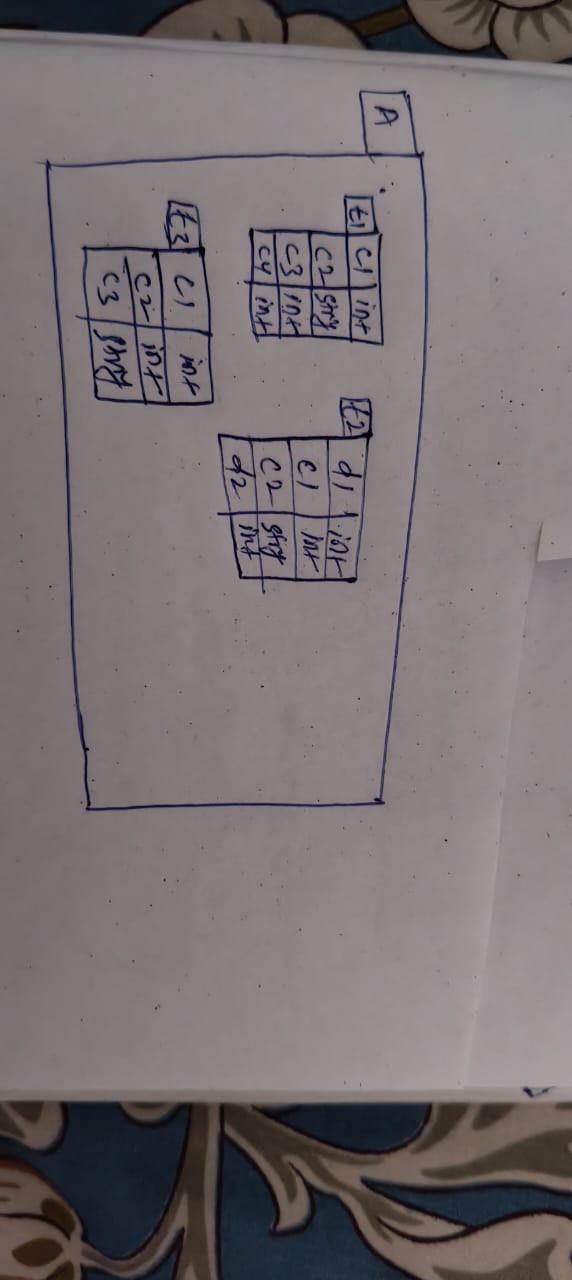 A
t1 c1 int
c2 stry
c3 int
c4 int
t2 d1 int
c1 int
c2 stry
d2 int
t3 c1 int
c2 int
c3 stry